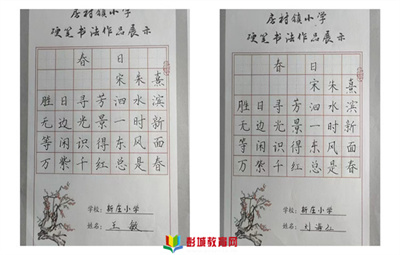 居村镇小学
硬笔书法作品展示
春日
宋朱熹
胜日寻芳泗水滨
无边光景一时新
等闲识得东风面
万紫千红总是春
学校：新庄小学
姓名：王敏
居村镇小学
硬笔书法作品展示
春日
宋朱熹
胜日寻芳泗水滨
无边光景一时新
等闲识得东风面
万紫千红总是春
学校：新庄小学
姓名：
彭城教育网